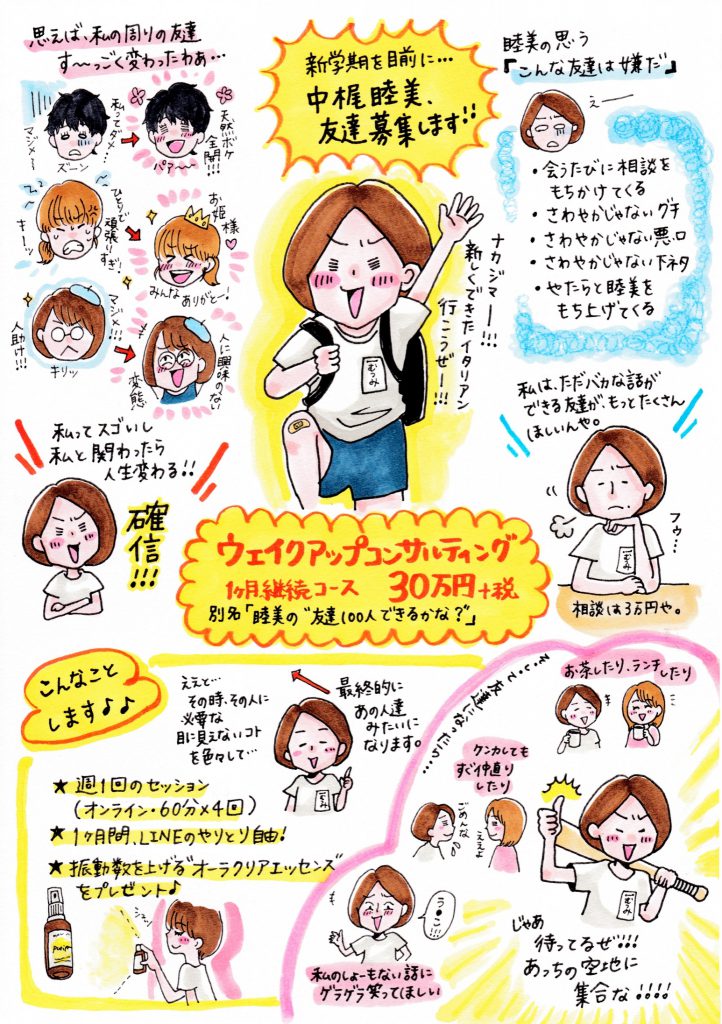 思えば、私の周りの友達
す〜っごく変わったわぁ…
私ってダメ…
マジメ〜〜
ズーン
天然ボケ
全開!!!
パァ〜〜
ひとりで
頑張りすぎ!
キーッ
お姫様
みんな ありがとー!
マジメ!!!
人助け!!!
キリッ
人に興味のない
変態!
私ってスゴいし
私と関わったら
人生変わる!!
確信!!!
新学期を目前に…
中梶睦美、
友達募集します!!
ナカジマー!!!
新しくできたイタリアン
行こうぜー!!!
むつみ
睦美の思う
「こんな友達は嫌だ」
えー
・会うたびに相談を
もちかけてくる
・さわやかじゃないグチ
・さわやかじゃない悪口
・さわやかじゃない下ネタ
・やたらと睦美を
もち上げてくる
私は、ただバカな話が
できる友達が、もっとたくさん
ほしいんや。
フゥ…
むつみ
相談は3万円や。
ウェイクアップコンサルティング
1ヶ月継続コース 30万円+税
別名「睦美の"友達100人できるかな?"」
こんなこと
します♪♪
ええと…
その時、その人に
必要な
目に見えないコト
を色々して…
最終的に
あの人達
みたいに
になります。
むつみ
★ 週1回のセッション
(オンライン・60分×4回)
★ 1ヶ月間、LINEのやりとり自由!
★ 振動数を上げる"オーラクリアエッセンス"
をプレゼント♪
そいで友達になったら…
お茶したり、ランチしたり
ケンカしても
すぐ仲直り
したり
ごめんな
ええよ
う○こ!!!
私のしょーもない話に
ゲラゲラ笑ってほしい
むつみ
じゃあ
待ってるぜ!!!
あっちの空地に
集合な!!!!